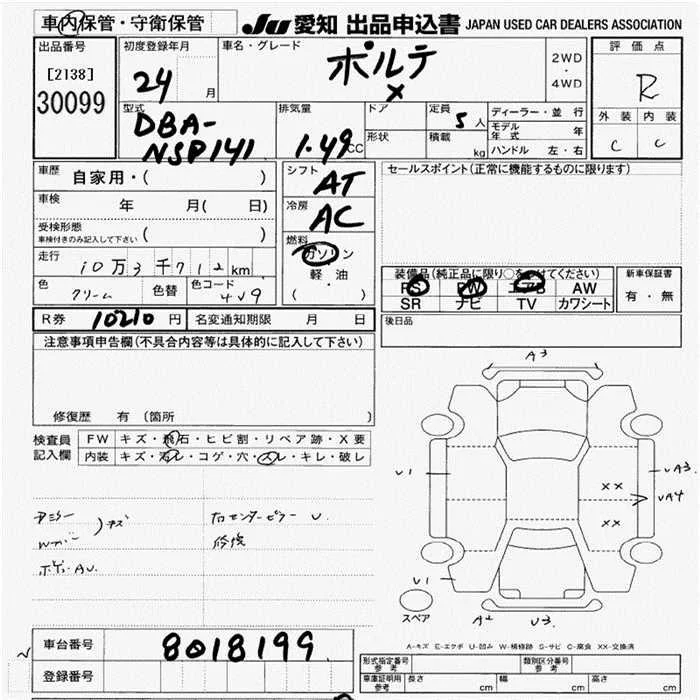 車内保管・守衛保管
JU 愛知 出品申込書 JAPAN USED CAR DEALERS ASSOCIATION
出品番号
[2138]
30099
初度登録年月
24 月
車名・グレード
ポルテ
X
2WD
・
4WD
評価点
R
外装 内装
C C
型式
DBA-
NSP141
排気量
1.49 CC
ドア
形状
定員 5 人
積載 kg
ディーラー・並行
モデル年式 年
ハンドル 左・右
車歴
自家用・( )
車検
年 月( 日)
受検形態
車検付きのみ記入して下さい ( )
走行
10万3千712km
色
クリーム
色替
色コード
4V9
シフト
AT
冷房
AC
燃料
ガソリン
軽・油
( )
セールスポイント(正常に機能するものに限ります)
装備品(純正品に限り○をつけてください)
PS PW エアB AW
SR ナビ TV カワシート
新車保証書
有・無
R券 10210 円 名変通知期限 月 日
後日品
注意事項申告欄(不具合内容等は具体的に記入して下さい)
修復歴 有 〔箇所 〕
検査員
記入欄
FW キズ・飛石・ヒビ割・リペア跡・X要
内装 キズ・汚レ・コゲ・穴・スレ・キレ・破レ
右センターピラー U.
修復
A3
U1
UA3
XX
UA4
XX
U1
スペア
A2 U3
A-キズ E-エクボ U-凹み W-補修跡 S-サビ C-腐食 XX-交換済
車台番号
8018199
登録番号
形式指定番号
参考
類別区分番号
参考
車庫証明用
参考
長さ cm 幅 cm 高さ cm